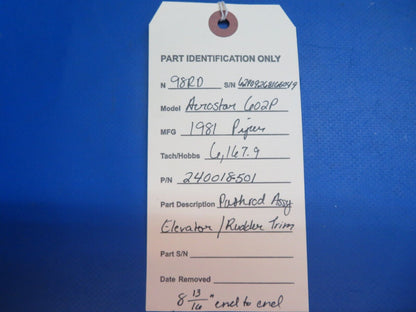 PART IDENTIFICATION ONLY
N 98RD S/N
Model Aerostar 602P
MFG 1981 Piper
Tach/Hobbs 6,167.9
P/N 240018-501
Part Description Pushrod Assy
Elevator/Rudder Trim
Part S/N
Date Removed
8 13/16" end to end